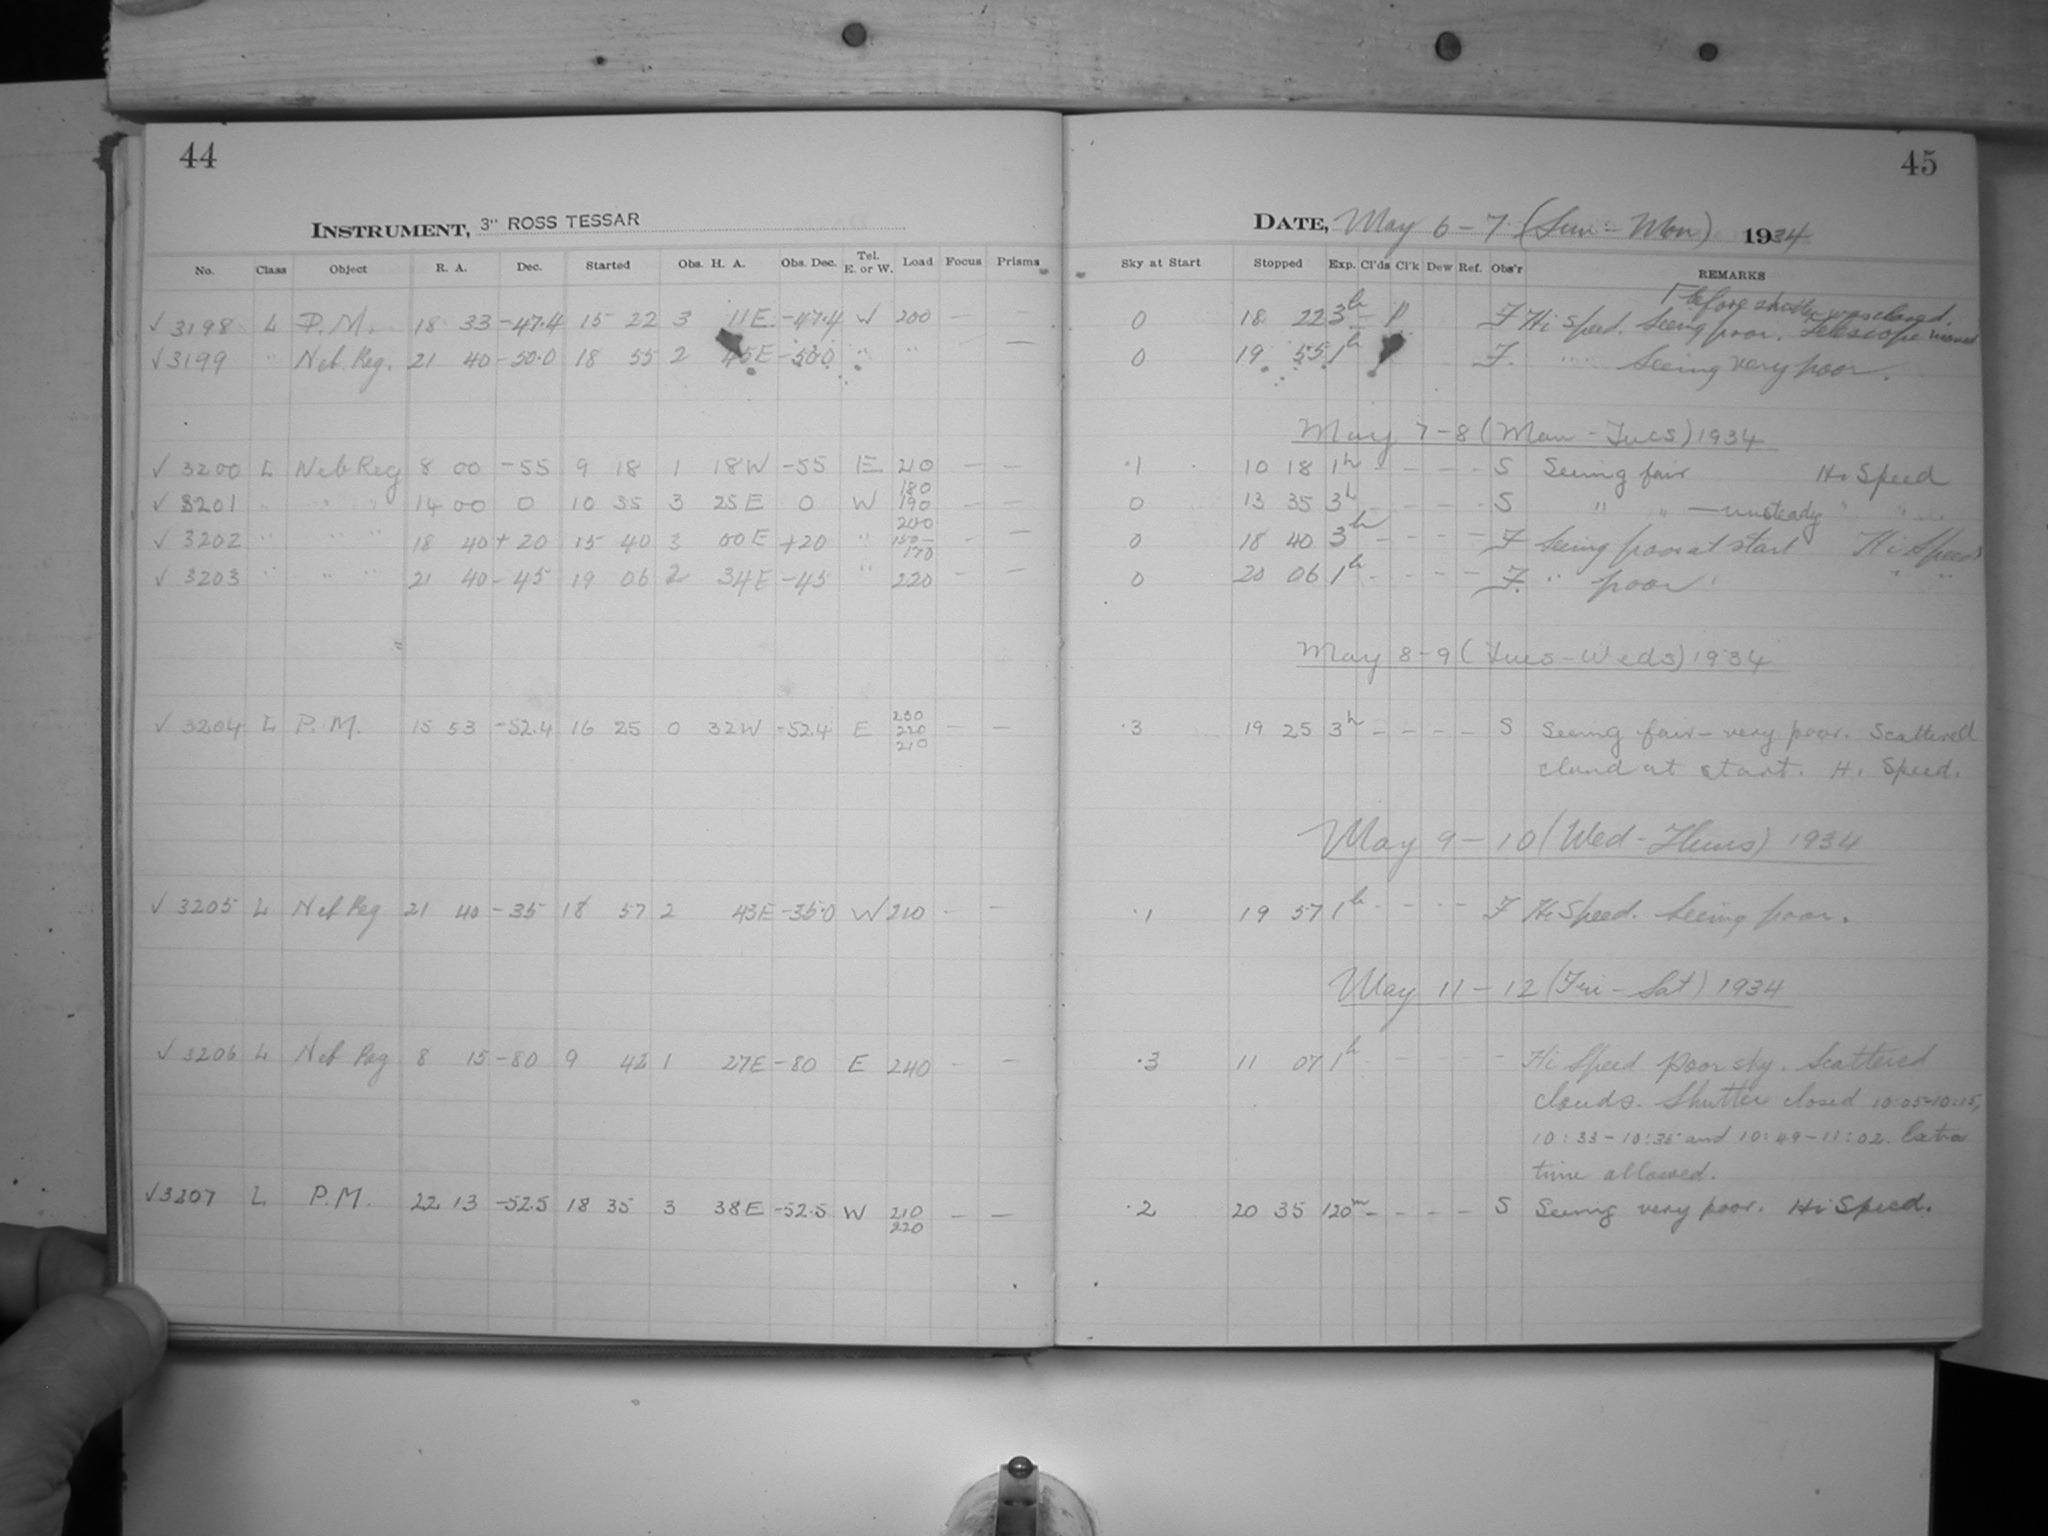 44
INSTRUMENT, 3" ROSS TESSAR
No. Class Object R. A. Dec. Started Obs. H. A. Obs. Dec. Tel. E. or W. Load Focus Prisms
√ 3198 L P.M. 18 33 -47.4 15 22 3 11E -47.4 W 200 — —
√ 3199 " Neb. Reg. 21 40 -50.0 18 55 2 45E -50.0 " " —
√ 3200 L Neb Reg 8 00 -55 9 18 1 18W -55 E 210 — —
√ 3201 " " " 14 00 0 10 35 3 25E 0 W 180 190 200 — —
√ 3202 " " " 18 40 +20 15 40 3 00E +20 " 150- 170 — —
√ 3203 " " " 21 40 -45 19 06 2 34E -45 " 220 — —
√ 3204 L P.M. 15 53 -52.4 16 25 0 32W -52.4 E 230 220 210 — —
√ 3205 L Neb Reg 21 40 -35 18 57 2 43E -35.0 W 210 - —
√ 3206 L Neb Reg 8 15 -80 9 42 1 27E -80 E 240 - —
√ 3207 L P.M. 22 13 -52.5 18 35 3 38E -52.5 W 210 220 — —
45
DATE, May 6-7 (Sun-Mon) 1934
Sky at Start Stopped Exp. Cl'ds Cl'k Dew Ref. Obs'r REMARKS
before shutter was closed.
0 18 22 3h - P F Hi speed. Seeing poor. Telescope moved
0 19 55 1h F. " " Seeing very poor.
May 7-8 (Mon-Tues) 1934
.1 10 18 1h - - - - S Seeing fair Hi Speed
0 13 35 3h - - - - S " " — unsteady " "
0 18 40 3h - - - - F Seeing poor at start Hi Speed
0 20 06 1h - - - - F. " poor " "
May 8-9 (Tues-Weds) 1934
.3 19 25 3h - - - - S Seeing fair - very poor. Scattered
cloud at start. Hi Speed.
May 9-10 (Wed-Thurs) 1934
.1 19 57 1h - - - - F Hi Speed. Seeing poor.
May 11-12 (Fri-Sat) 1934
.3 11 07 1h - - - - Hi Speed Poor sky. Scattered
clouds. Shutter closed 10:05-10:15,
10:33-10:35 and 10:49-11:02. Extra
time allowed.
.2 20 35 120m - - - - S Seeing very poor. Hi Speed.